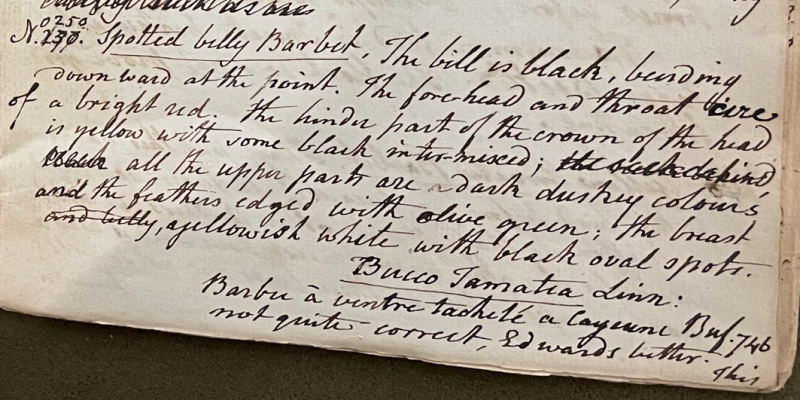 0250
N. 230. Spotted belly Barbet, The bill is black, bending
downward at the point. The fore-head and throat are
of a bright red. the hinder part of the crown of the head
is yellow with some black inter-mixed; the back behind
all the upper parts are a dark duskey colours
and the feathers edged with olive green; the breast
and belly, a yellowish white with black oval spots.
Bucco Tamatia Linn:
Barbu à ventre tacheté a Cayenne Buf. 746
not quite correct, Edwards better. This